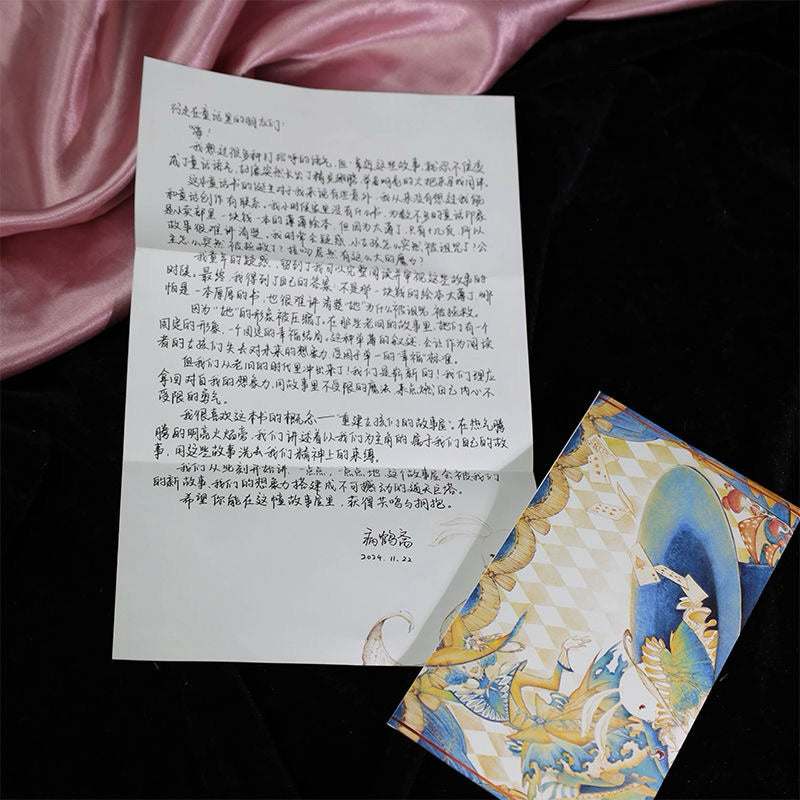 行走在童话里的朋友们：
“嗨！
我想过很多种打招呼的语气，但一靠近这些故事，就忍不住变
成了童话语气，好像突然长出了精灵翅膀，举着明亮的火把来寻找同伴。
这本童话书的诞生对于我来说有些意外，我从来没有想过我能
和童话创作有联系。我小时候家里没有什么书，为数不多的童话印象
是小卖部里一块钱一本的薄薄绘本，但因为太薄了，只有十几页，所以
故事很难讲清楚。我时常会疑惑，小女孩怎么突然被诅咒了？公
主怎么突然被拯救了？接吻居然有这么大的魔力？
我童年的疑惑，留到了我可以完整阅读并审视这些故事的
时候。最终，我得到了自己的答案，不是那一块钱的绘本太薄了，哪
怕是一本厚厚的书，也很难讲清楚“她”为什么被诅咒、被拯救。
因为“她”的形象被压缩了。在那些老旧的故事里，她们有一个
固定的形象，一个固定的幸福结局。这种单薄的叙述，会让作为阅读
者的女孩们失去对未来的想象力，误困于单一的“幸福”标准。
但我们从老旧的时代里冲出来了！我们是崭新的！我们理应
拿回对自我的想象力，用故事里不受限的魔法，来点燃自己内心不
受限的勇气。
我很喜欢这本书的概念——“重建女孩们的故事屋”。在热气腾
腾的明亮火焰旁，我们讲述着以我们为主角的、属于我们自己的故
事，用这些故事洗去我们精神上的束缚。
我们从此刻开始讲，一点点、一点点地，这个故事屋会被我们
的新故事、我们的想象力搭建成不可撼动的通天巨塔。
希望你能在这幢故事屋里，获得共鸣与拥抱。
病鹤斋
2024.11.22